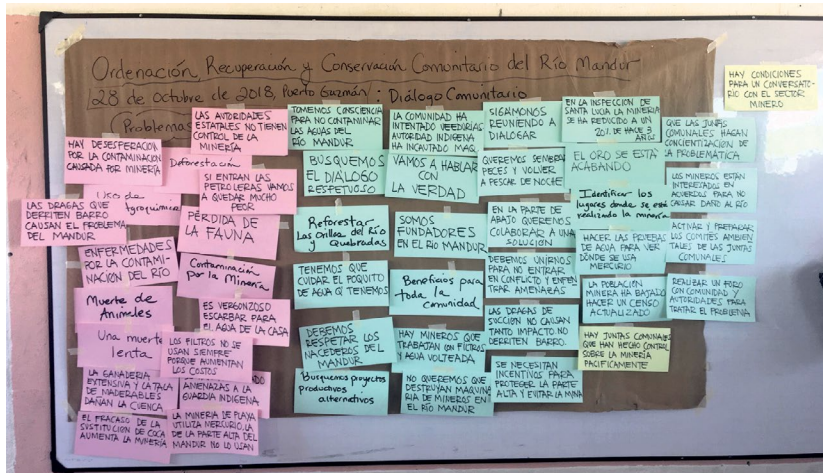 Ordenación, Recuperación y Conservación Comunitario del Río Mandur
28 de Octubre de 2018, Puerto Guzmán: Diálogo Comunitario
Problemas
HAY DESESPERACIÓN
POR LA CONTAMINACIÓN
CAUSADA POR MINERÍA
Uso de
agroquímicos
LAS DRAGAS QUE
DERRITEN BARRO
CAUSAN EL PROBLEMA
DEL MANDUR
ENFERMEDADES
POR LA CONTAMI-
NACIÓN DEL RÍO
Muerte de
Animales
Una muerte
lenta
LA GANADERIA
EXTENSIVA Y LA TALA
DE MADERABLES
DAÑAN LA CUENCA
EL FRACASO DE LA
SUSTITUCIÓN DE COCA
AUMENTA LA MINERÍA
LAS AUTORIDADES
ESTATALES NO TIENEN
CONTROL DE LA
MINERÍA
Deforestación
SI ENTRAN LAS
PETROLERAS VAMOS
A QUEDAR MUCHO
PEOR
PÉRDIDA DE
LA FAUNA
Contaminación
por la Minería
ES VERGONZOSO
ESCARBAR PARA
EL AGUA DE LA CASA
LOS FILTROS NO SE
USAN SIEMPRE
PORQUE AUMENTAN
LOS COSTOS
AMENAZAS A LA
GUARDIA INDIGENA
LA MINERIA DE PLAYA
UTILIZA MERCURIO, LA
DE LA PARTE ALTA DEL
MANDUR NO LO USAN
TOMEMOS CONSCIENCIA
PARA NO CONTAMINAR
LAS AGUAS DEL
RÍO MANDUR
BUSQUEMOS
EL DIÁLOGO
RESPETUOSO
Reforestar
Las Orillas del Río
y Quebradas
TENEMOS QUE
CUIDAR EL POQUITO
DE AGUA Q TENEMOS
DEBEMOS
RESPETAR LOS
NACEDEROS DEL
MANDUR
Busquemos proyectos
productivos
alternativos
LA COMUNIDAD HA
INTENTADO VEEDURIAS
AUTORIDAD INDIGENA
HA INCAUTADO MAQ.
VAMOS A HABLAR
CON
LA VERDAD
SOMOS
FUNDADORES
EN EL RIO MANDUR
Beneficios para
toda la
comunidad
HAY MINEROS QUE
TRABAJAN CON FILTROS
Y AGUA VOLTEADA
NO QUEREMOS QUE
DESTRUYAN MAQUINA
RIA DE MINEROS EN
EL RÍO MANDUR
SIGÁMONOS
REUNIENDO A
DIALOGAR
QUEREMOS SEMBRAR
PECES Y VOLVER
A PESCAR DE NOCHE
EN LA PARTE DE
ABAJO QUEREMOS
COLABORAR A UNA
SOLUCIÓN
DEBEMOS UNIRNOS
PARA NO ENTRAR
EN CONFLICTO Y ENFREN
TAR AMENAZAS
LAS DRAGAS DE
SUCCION NO CAUSAN
TANTO IMPACTO. NO
DERRITEN BARRO.
SE NECESITAN
INCENTIVOS PARA
PROTEGER LA PARTE
ALTA Y EVITAR LA MINA
EN LA INSPECCION DE
SANTA LUCIA LA MINERIA
SE HA REDUCIDO A UN
20% DE HACE 8
AÑOS
EL ORO SE ESTÁ
ACABANDO
Identificar los
lugares donde se está
realizando la minería
HACER LAS PRUEBAS
DE AGUA PARA VER
DÓNDE SE USA
MERCURIO
LA POBLACIÓN
MINERA HA BAJADO
HACER UN CENSO
ACTUALIZADO
HAY JUNTAS COMUNALES
QUE HAN HECHO CONTROL
SOBRE LA MINERÍA
PACIFICAMENTE
QUE LAS JUNTAS
COMUNALES HAGAN
CONCIENTIZACIÓN DE
LA PROBLEMÁTICA
LOS MINEROS ESTAN
INTEREZADOS EN
ACUERDOS PARA NO
CAUSAR DAÑO AL RÍO
ACTIVAR Y PREPARAR
LOS COMITÉS AMBIEN
TALES DE LAS JUNTAS
COMUNALES
REALIZAR UN FORO
CON COMUNIDAD Y
AUTORIDADES PARA
TRATAR EL PROBLEMA
HAY CONDICIONES
PARA UN CONVERSATO-
RIO CON EL SECTOR
MINERO